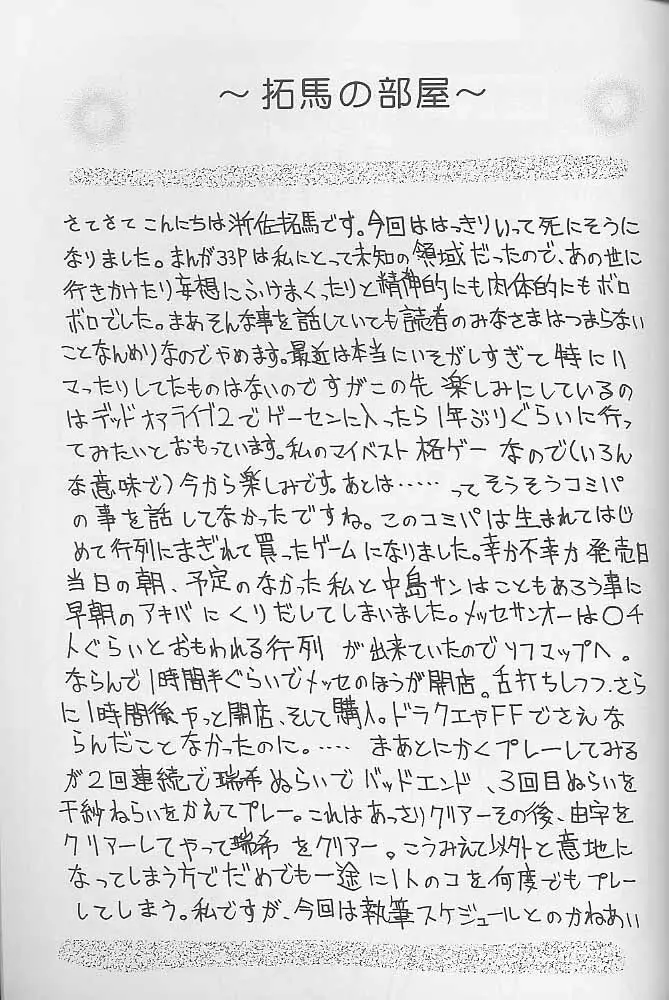 ～拓馬の部屋～
さてさてこんにちは浙佐拓馬です。今回ははっきりいって死にそうに
なりました。まんが33Pは私にとって未知の領域だったので、あの世に
行きかけたり妄想にふけまくったりと精神的にも肉体的にもボロ
ボロでした。まあそんな事を話していても読者のみなさまはつまらない
ことなんめりなのでやめます。最近は本当にいそがしすぎて特にハ
マったりしてたものはないのですがこの先楽しみにしているの
はデッドオアライブ2でゲーセンに入ったら1年ぶりぐらいに行っ
てみたいとおもっています。私のマイベスト格ゲーなので(いろん
な意味で)今から楽しみです。あとは……ってそうそうコミパ
の事を話してなかったですね。このコミパは生まれてはじ
めて行列にまぎれて買ったゲームになりました。幸か不幸か発売日
当日の朝、予定のなかった私と中島サンはこともあろう事に
早朝のアキバにくりだしてしまいました。メッセサンオーは〇千
人ぐらいとおもわれる行列が出来ていたのでソフマップへ。
ならんで1時間半ぐらいでメッセのほうが開店。舌打ちしつつ、さら
に1時間後やっと開店、そして購入。ドラクエやFFでさえな
らんだことなかったのに。……まあとにかくプレーしてみる
が2回連続で瑞希ねらいでバッドエンド、3回目ねらいを
千紗ねらいをかえてプレー。これはあっさりクリアーその後、由宇を
クリアーしてやって瑞希をクリアー。こうみえて以外と意地に
なってしまう方でだめでも一途に1人のコを何度でもプレー
してしまう。私ですが、今回は執筆スケジュールとのかねあい